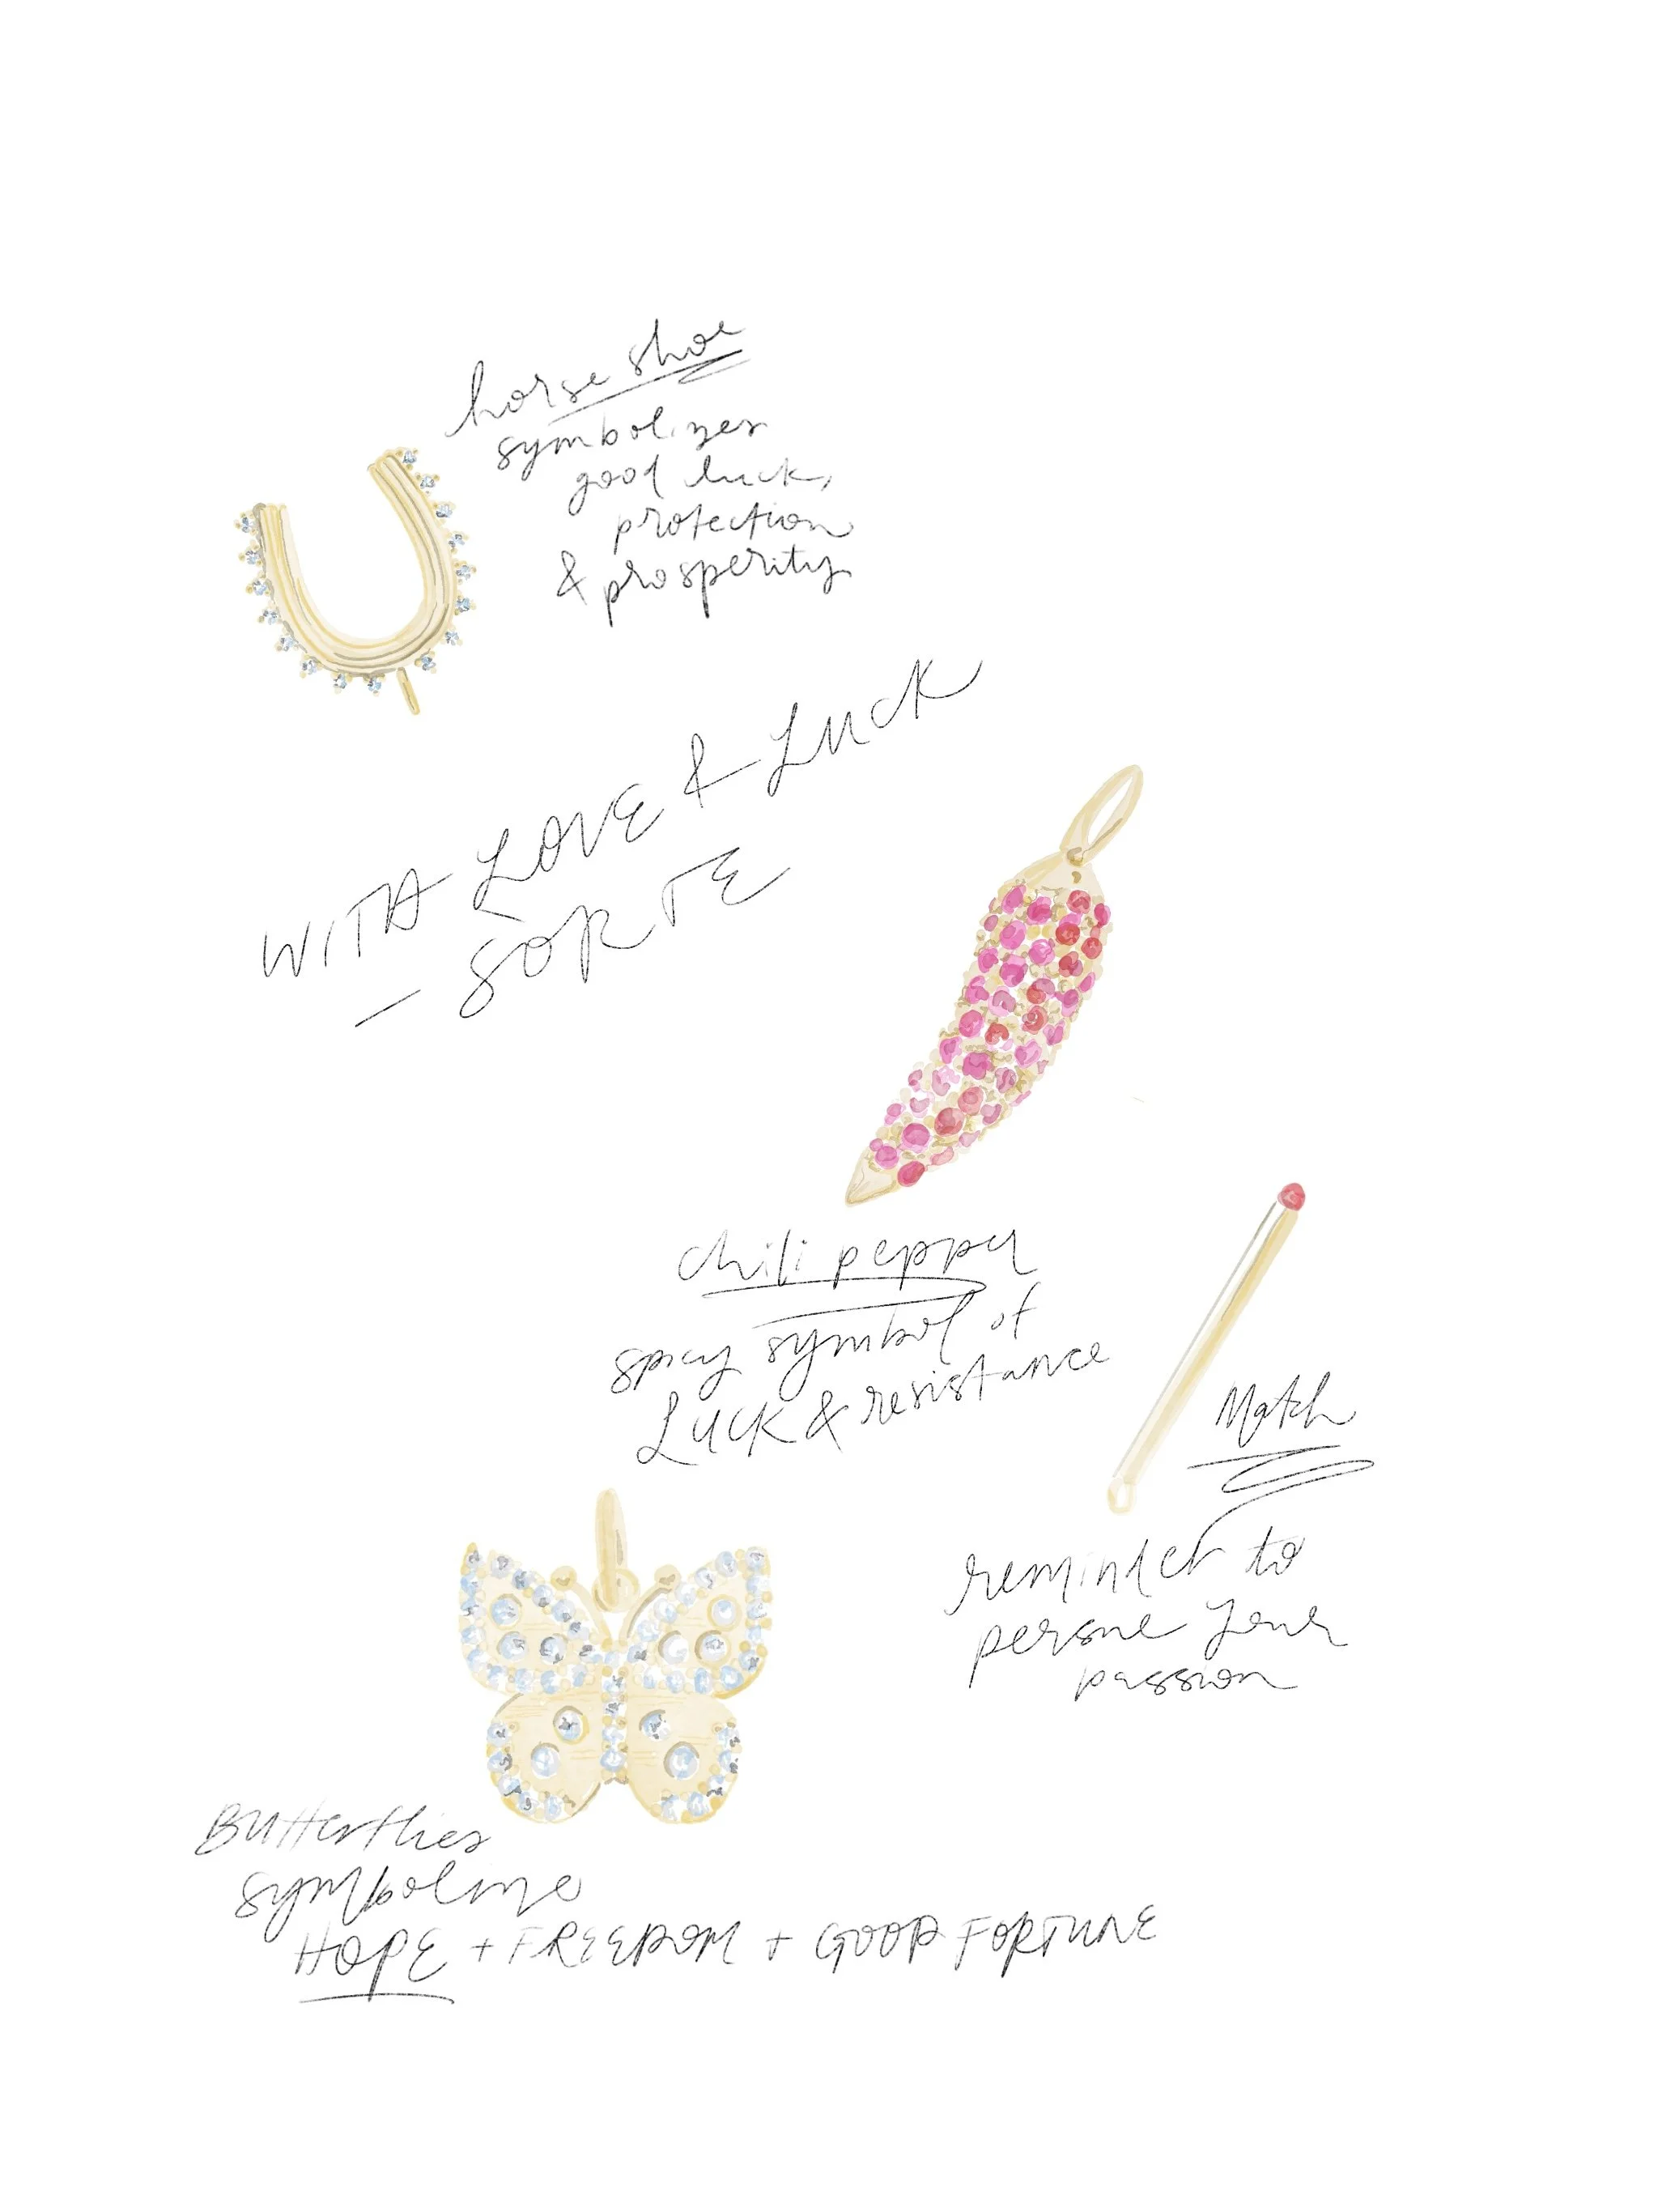 horse shoe
symbolizes
good luck,
protection
& prosperity
WITH LOVE & LUCK
— SORTE
chili pepper
spicy symbol of
Luck & resistance
Match
reminder to
persue your
passion
Butterflies
symbolize
HOPE + FREEDOM + GOOD FORTUNE